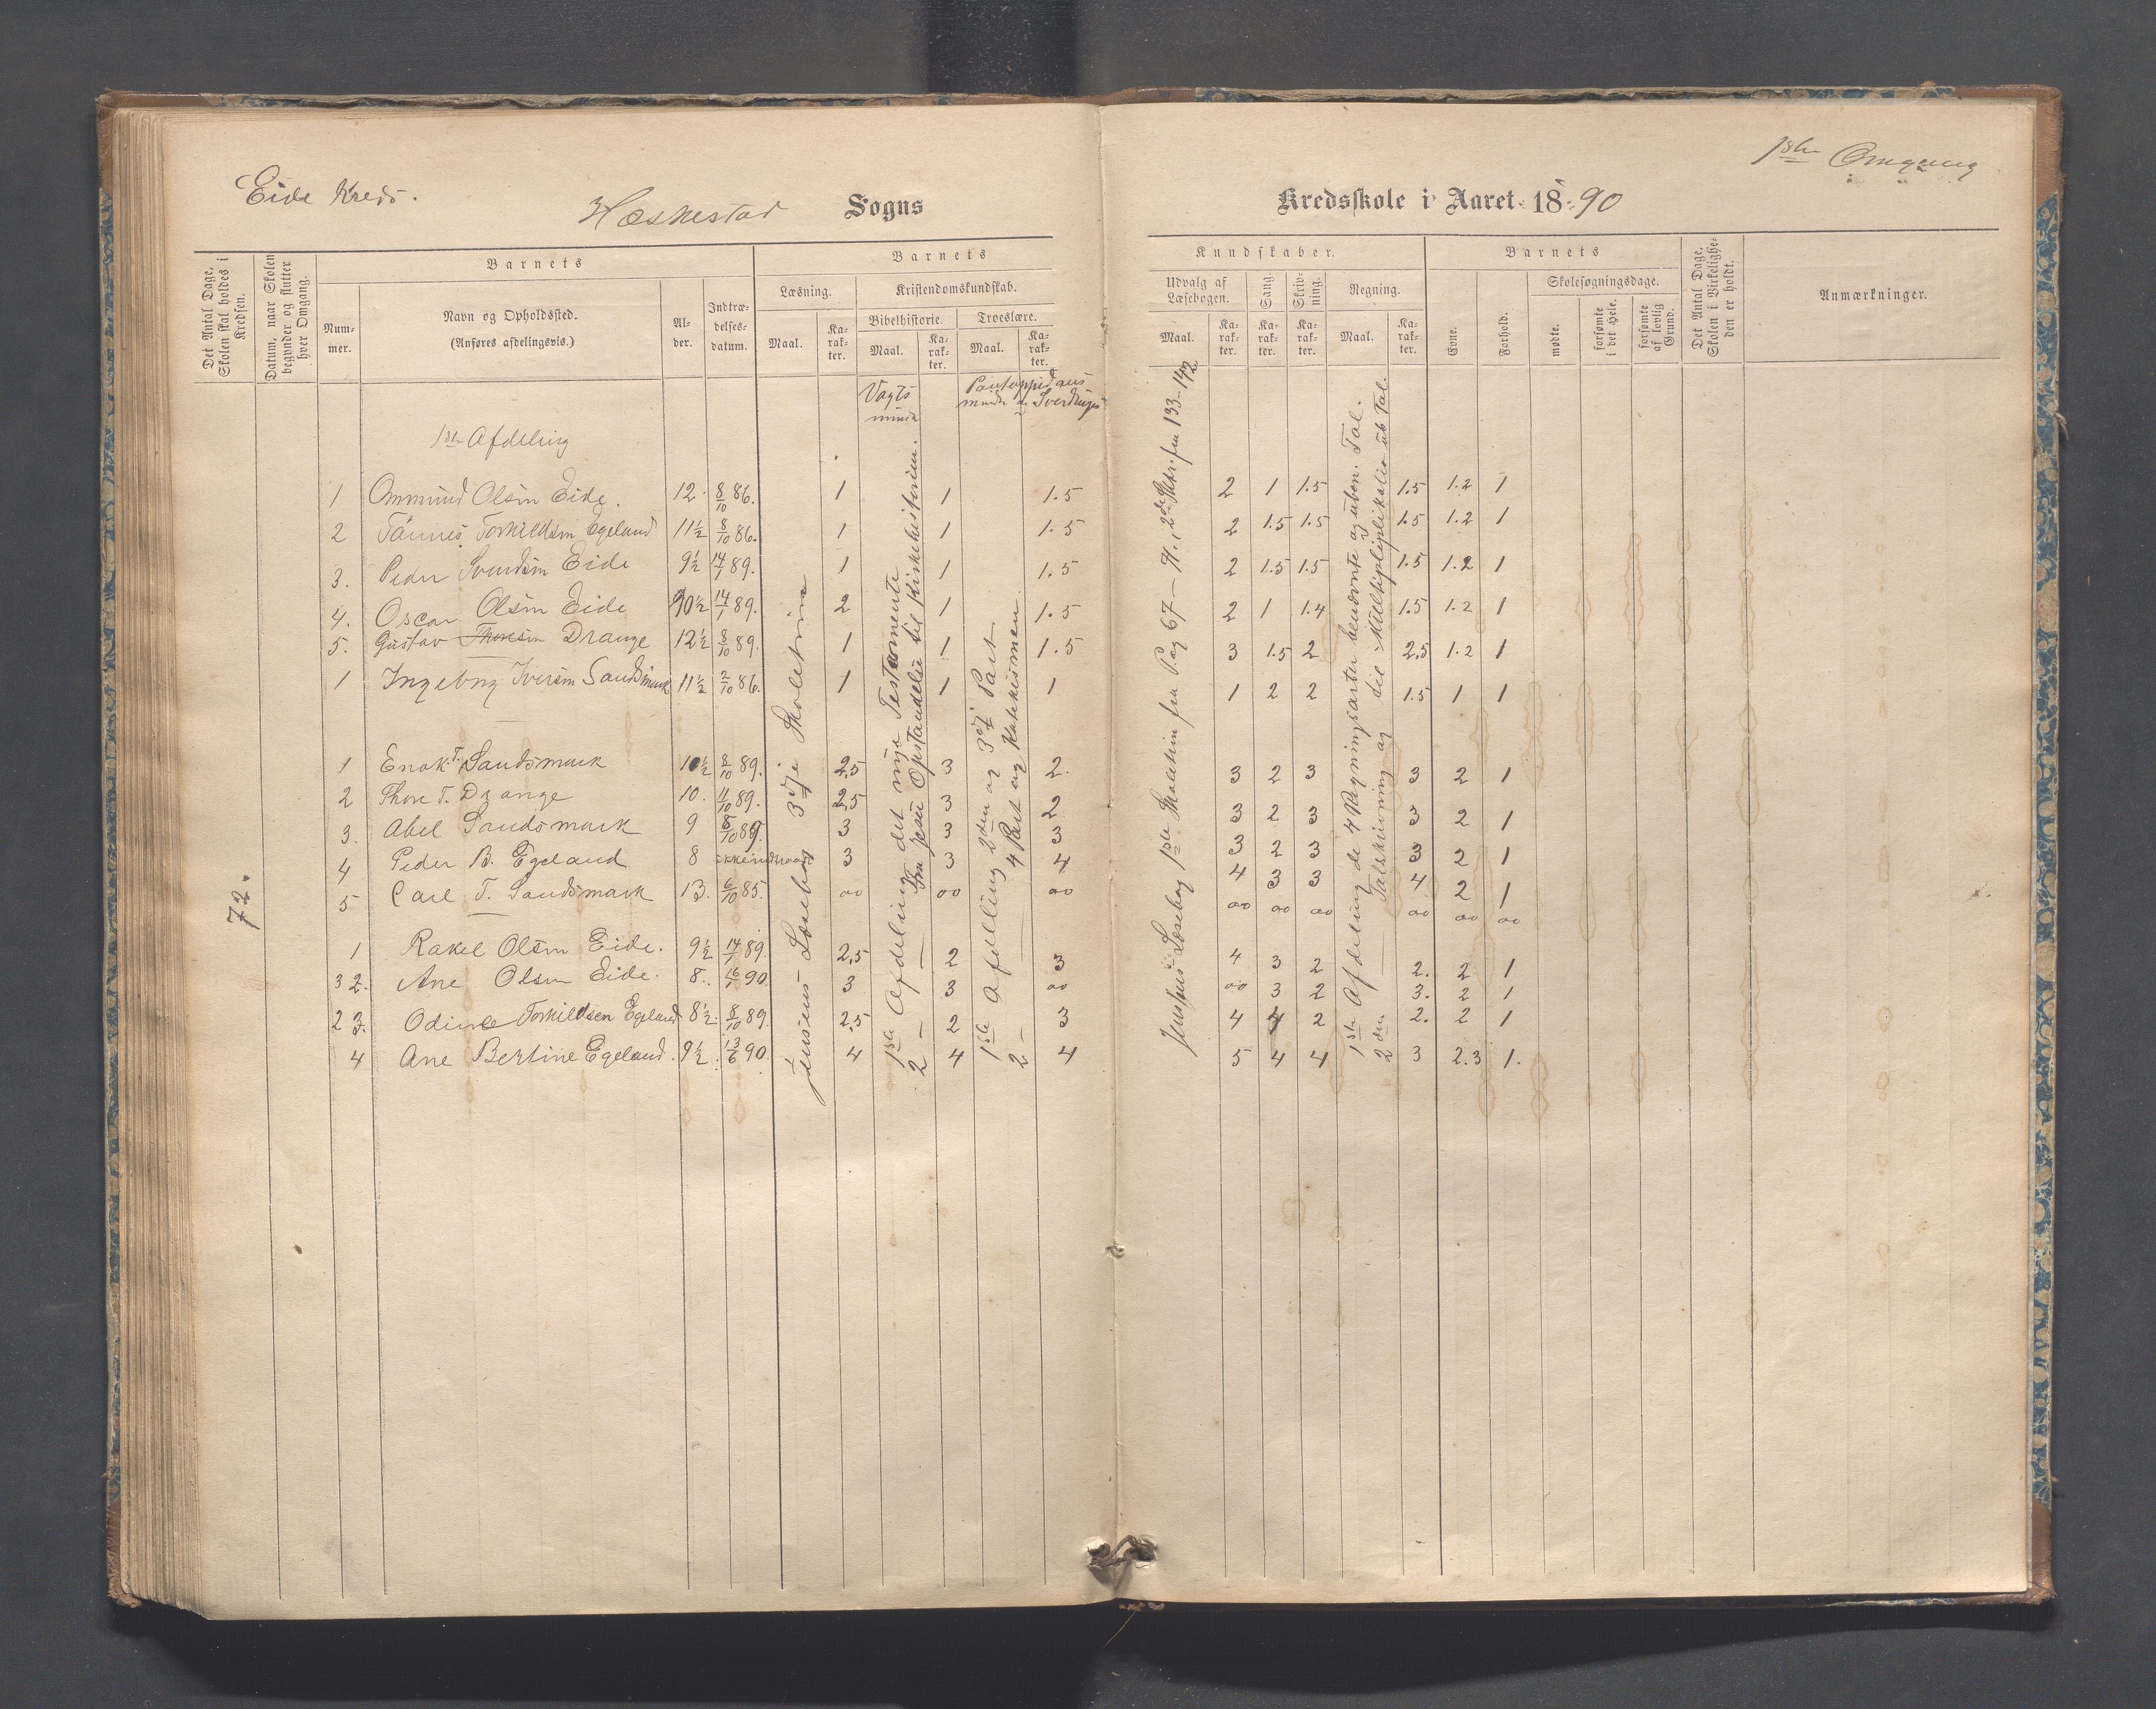 Eide Kreds.
Hæskestad Sogns
Kredsskole i Aaret 18 90
1ste Omgang
Det Antal Dage, Skolen skal holdes i Kredsen.
Datum, naar Skolen begynder og slutter hver Omgang.
Barnets
Nummer.
Navn og Opholdssted.
(Anføres afdelingsvis.)
Alder.
Indtrædelsesdatum.
Barnets
Læsning.
Maal.
Karakter.
Kristendomskundskab.
Bibelhistorie.
Maal.
Karakter.
Troeslære.
Maal.
Karakter.
Kundskaber.
Udvalg af Læsebogen.
Maal.
Karakter.
Sang.
Karakter.
Skrivning.
Karakter.
Regning.
Maal.
Karakter.
Barnets
Evne.
Forhold.
Skolesøgningsdage.
mødte.
forsømte i det Hele.
forsømte af lovlig Grund.
Det Antal Dage, Skolen i Virkeligheden er holdt.
Anmærkninger.
Vogts mindre
Pontoppidans mindre og Sverdrups
1ste Afdeling
72.
1 Ommund Olsen Eide. 12. 8/10 86. 1 1 1.5 2 1 1.5 1.5 1.2 1
2 Tønnes Torkildsen Egeland 11½ 8/10 86. 1 1 1.5 2 1.5 1.5 1.5 1.2 1
3. Peder Svendsen Eide 9½ 14/1 89. 1 1 1.5 2 1.5 1.5 1.5 1.2 1
4. Oscar Olsen Eide 10½ 14/1 89. 2 1 1.5 2 1 1.4 1.5 1.2 1
5. Gustav Thoresen Drange 12½ 8/10 89. 1 1 1.5 3 1.5 2 2.5 1.2 1
1 Ingeborg Iversen Sandsmark 11½ 2/10 86. 1 1 1 1 2 2 1.5 1 1
1 Enok T. Sandsmark 10½ 8/10 89. 2,5 3 2. 3 2 3 3 2 1
2 Thore T. Drange 10. 11/10 89. 2,5 3 2 3 2 3 3 2 1
3. Abel Sandsmark 9 8/10 89. 3 3 3 3 2 3 3 2 1
4 Peder B. Egeland 8 ikke indskrevet 3 3 4 4 3 3 4 2 1
5 Carl T. Sandsmark 13. 6/10 85. oo oo oo oo oo oo oo oo oo
1 Rakel Olsen Eide. 9½ 14/1 89. 2,5 2 3 4 3 2 2. 2 1
3 2. Ane Olsen Eide. 8. 16/1 90. 3 3 oo oo 3 2 3. 2 1
2 3. Odine Torkildsen Egeland 8½. 8/10 89. 2,5 2 3 4 4 2 2. 2 1
4 Ane Bertine Egeland. 9½. 13/6 90. 4 4 4 5 4 4 3 2.3 1.
Jensens Læsebog 3die Skoletrin
1ste Afdeling det nye Testamente
2 — fra Jesu Opstandelse til Kirkehistorien.
1ste Afdeling 2den og 3die Part
2 — 4 Part og Katekismen
Jensens Læsebog 1ste Skoletrin fra Pag 67 — 2de fra 133-142
1ste Afdeling de 4 Regningsarter benævnte og ubn. Tal.
2den — Talskrivning og til Multiplikation ub Tal.